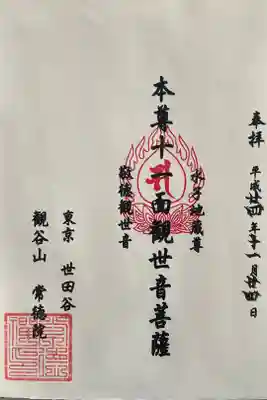 奉拝
平成廿四年十一月廿四日
水子地蔵尊
本尊十一面観世音菩薩
救世観世音
東京 世田谷
観谷山 常徳院